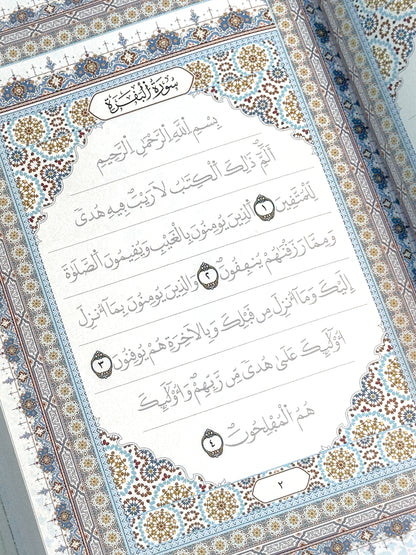 سُورَةُ الْبَقَرَةِ
بِسْمِ اللَّهِ الرَّحْمَٰنِ الرَّحِيمِ
الٓمٓ ذَٰلِكَ الْكِتَابُ لَا رَيْبَ فِيهِ هُدًى
لِلْمُتَّقِينَ ١ الَّذِينَ يُؤْمِنُونَ بِالْغَيْبِ وَيُقِيمُونَ الصَّلَوٰةَ
وَمِمَّا رَزَقْنَاهُمْ يُنْفِقُونَ ٢ وَالَّذِينَ يُؤْمِنُونَ بِمَا أُنْزِلَ
إِلَيْكَ وَمَا أُنْزِلَ مِنْ قَبْلِكَ وَبِالْآخِرَةِ هُمْ يُوقِنُونَ ٣
أُولَٰئِكَ عَلَىٰ هُدًى مِنْ رَبِّهِمْ وَأُولَٰئِكَ
هُمُ الْمُفْلِحُونَ ٤
٢